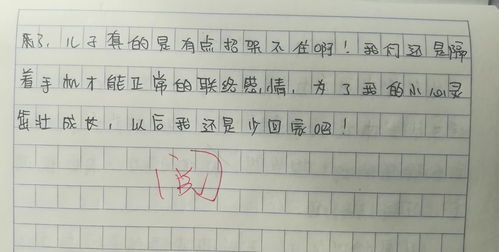 了，儿子真的是有点招架不住啊！我们还是隔
着手机才能正常的联络感情，为了我的小心灵
壮成长，以后我还是少回家吧！
阅